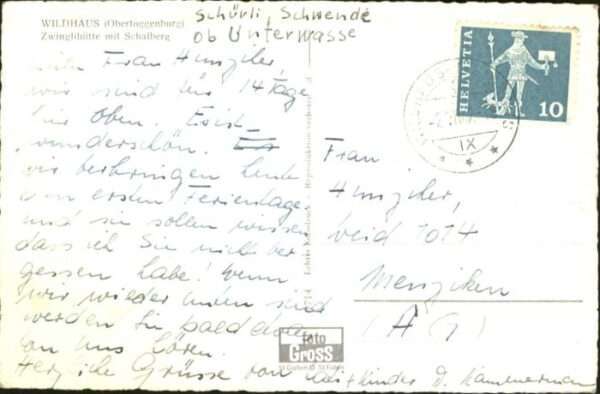 WILDHAUS (Obertoggenburg)
Zwinglihütte mit Schafberg
Schürli, Schwende
ob Unterwasser
Frau Hunziker,
wir sind für 14 Tage
hier Oben. Es ist
wunderschön.
wir verbringen heute
den ersten Ferientag
und sie sollen wissen
dass ich Sie nicht ver
gessen habe! Wenn
wir wieder unten sind
werden Sie bald
von uns hören.
Herzliche Grüsse von
D. Kammermann
HELVETIA
10
IX
Frau
Hunziker,
weid 1074
Menziken
(AG)
foto
GROSS